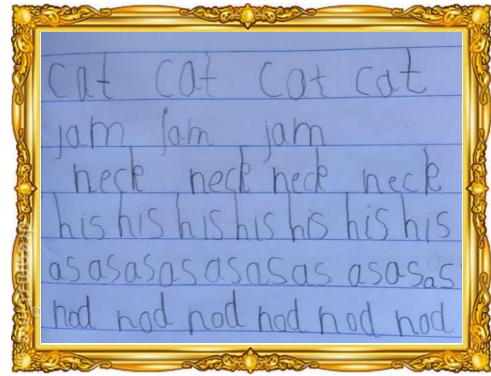 cat cat cat cat
jam jam jam
neck neck neck neck
his his his his his his his
as as as as as as as as as as
nod nod nod nod nod nod